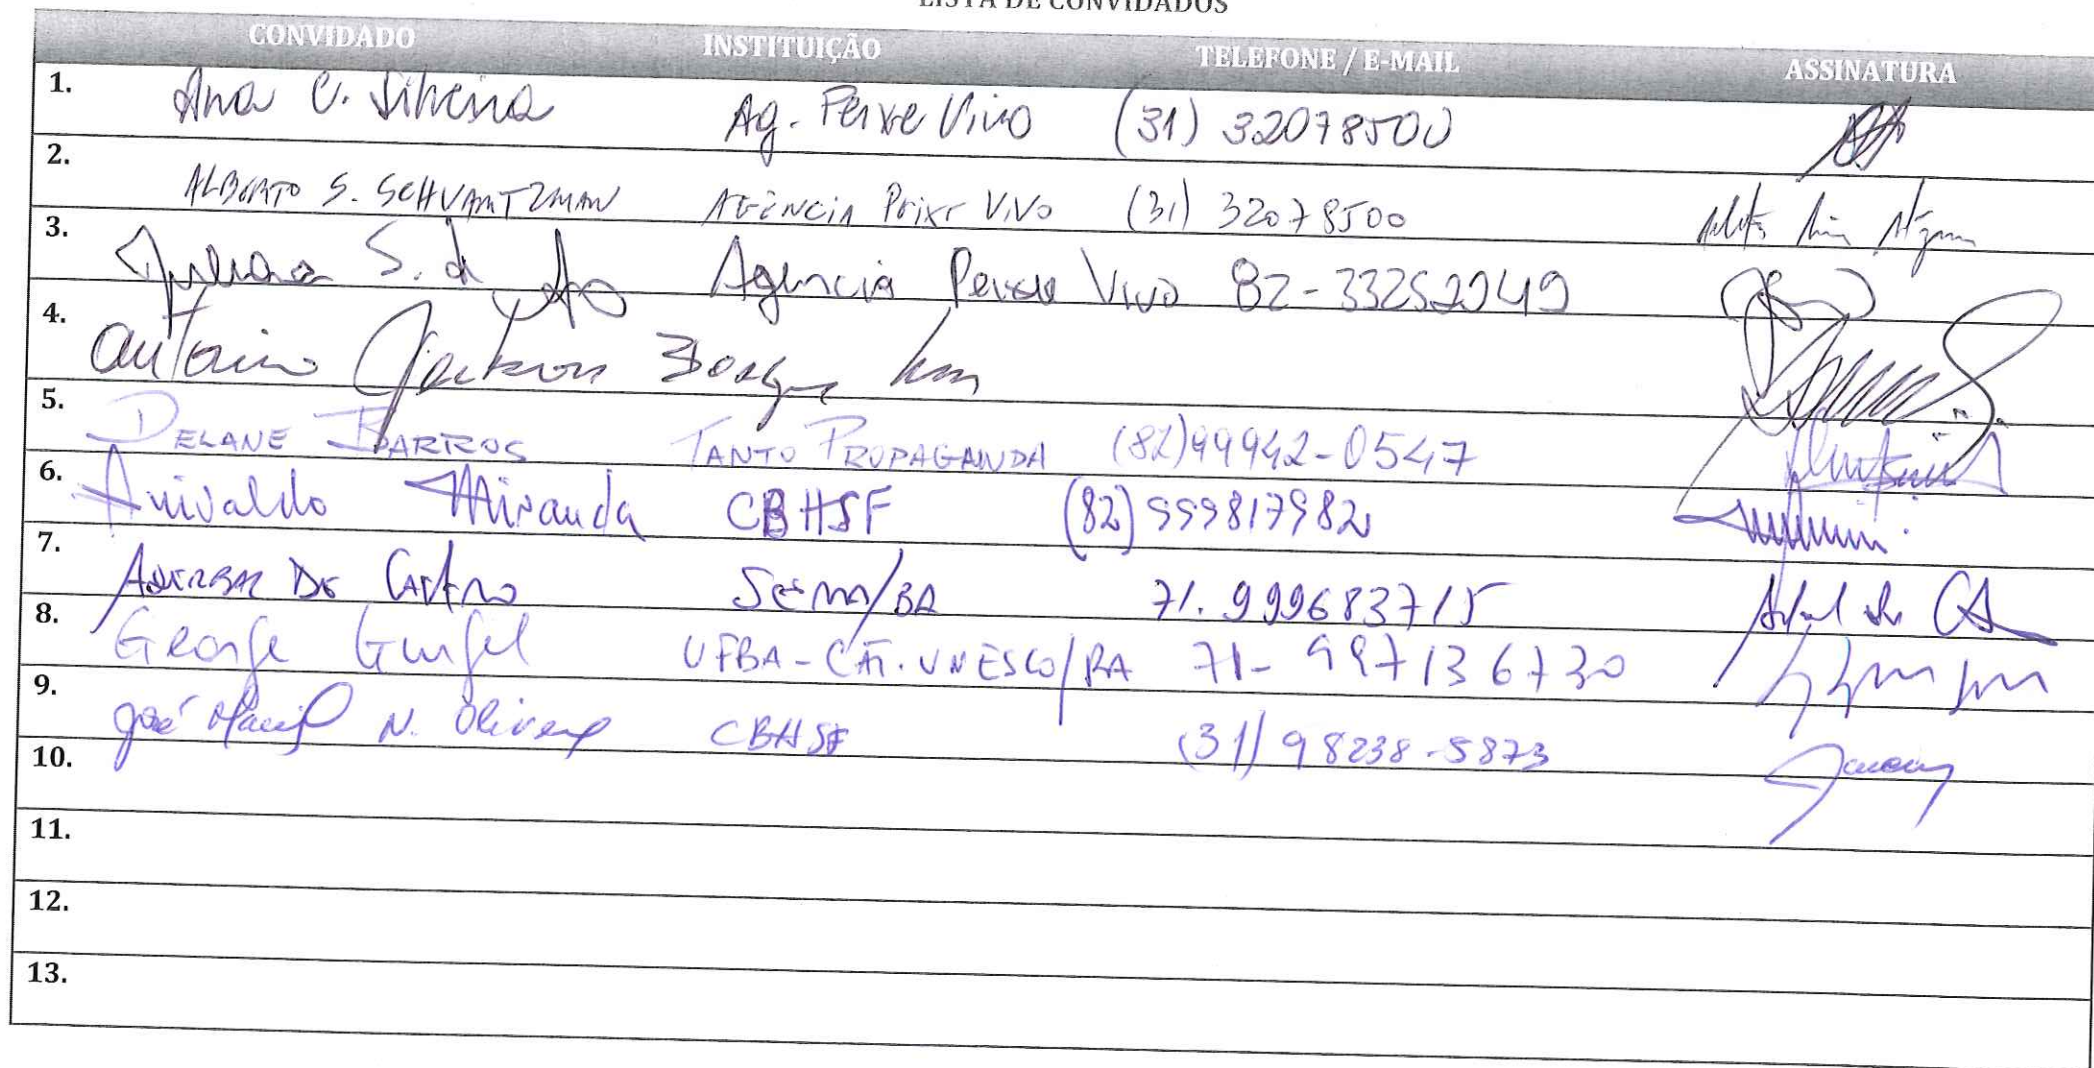 LISTA DE CONVIDADOS
CONVIDADO INSTITUIÇÃO TELEFONE / E-MAIL ASSINATURA
1. Ana C. Silveira Ag. Peixe Vivo (31) 32078500
2. ALBERTO S. SCHVARTZMAN AGÊNCIA Peixe Vivo (31) 32078500
3. Juliana S. de Agência Peixe Vivo 82-33252949
4. Antonio Jackson Borges
5. DELANE BARROS TANTO PROPAGANDA (82)99942-0547
6. Anivaldo Miranda CBHSF (82) 999817982
7. ADERBAL DE Castro SEMA/BA 71.999683715
8. George Gurgel UFBA-CÁT.UNESCO/BA 71-997136730
9. José Maciel N. Oliveira CBHSF (31) 98238-5873
10.
11.
12.
13.